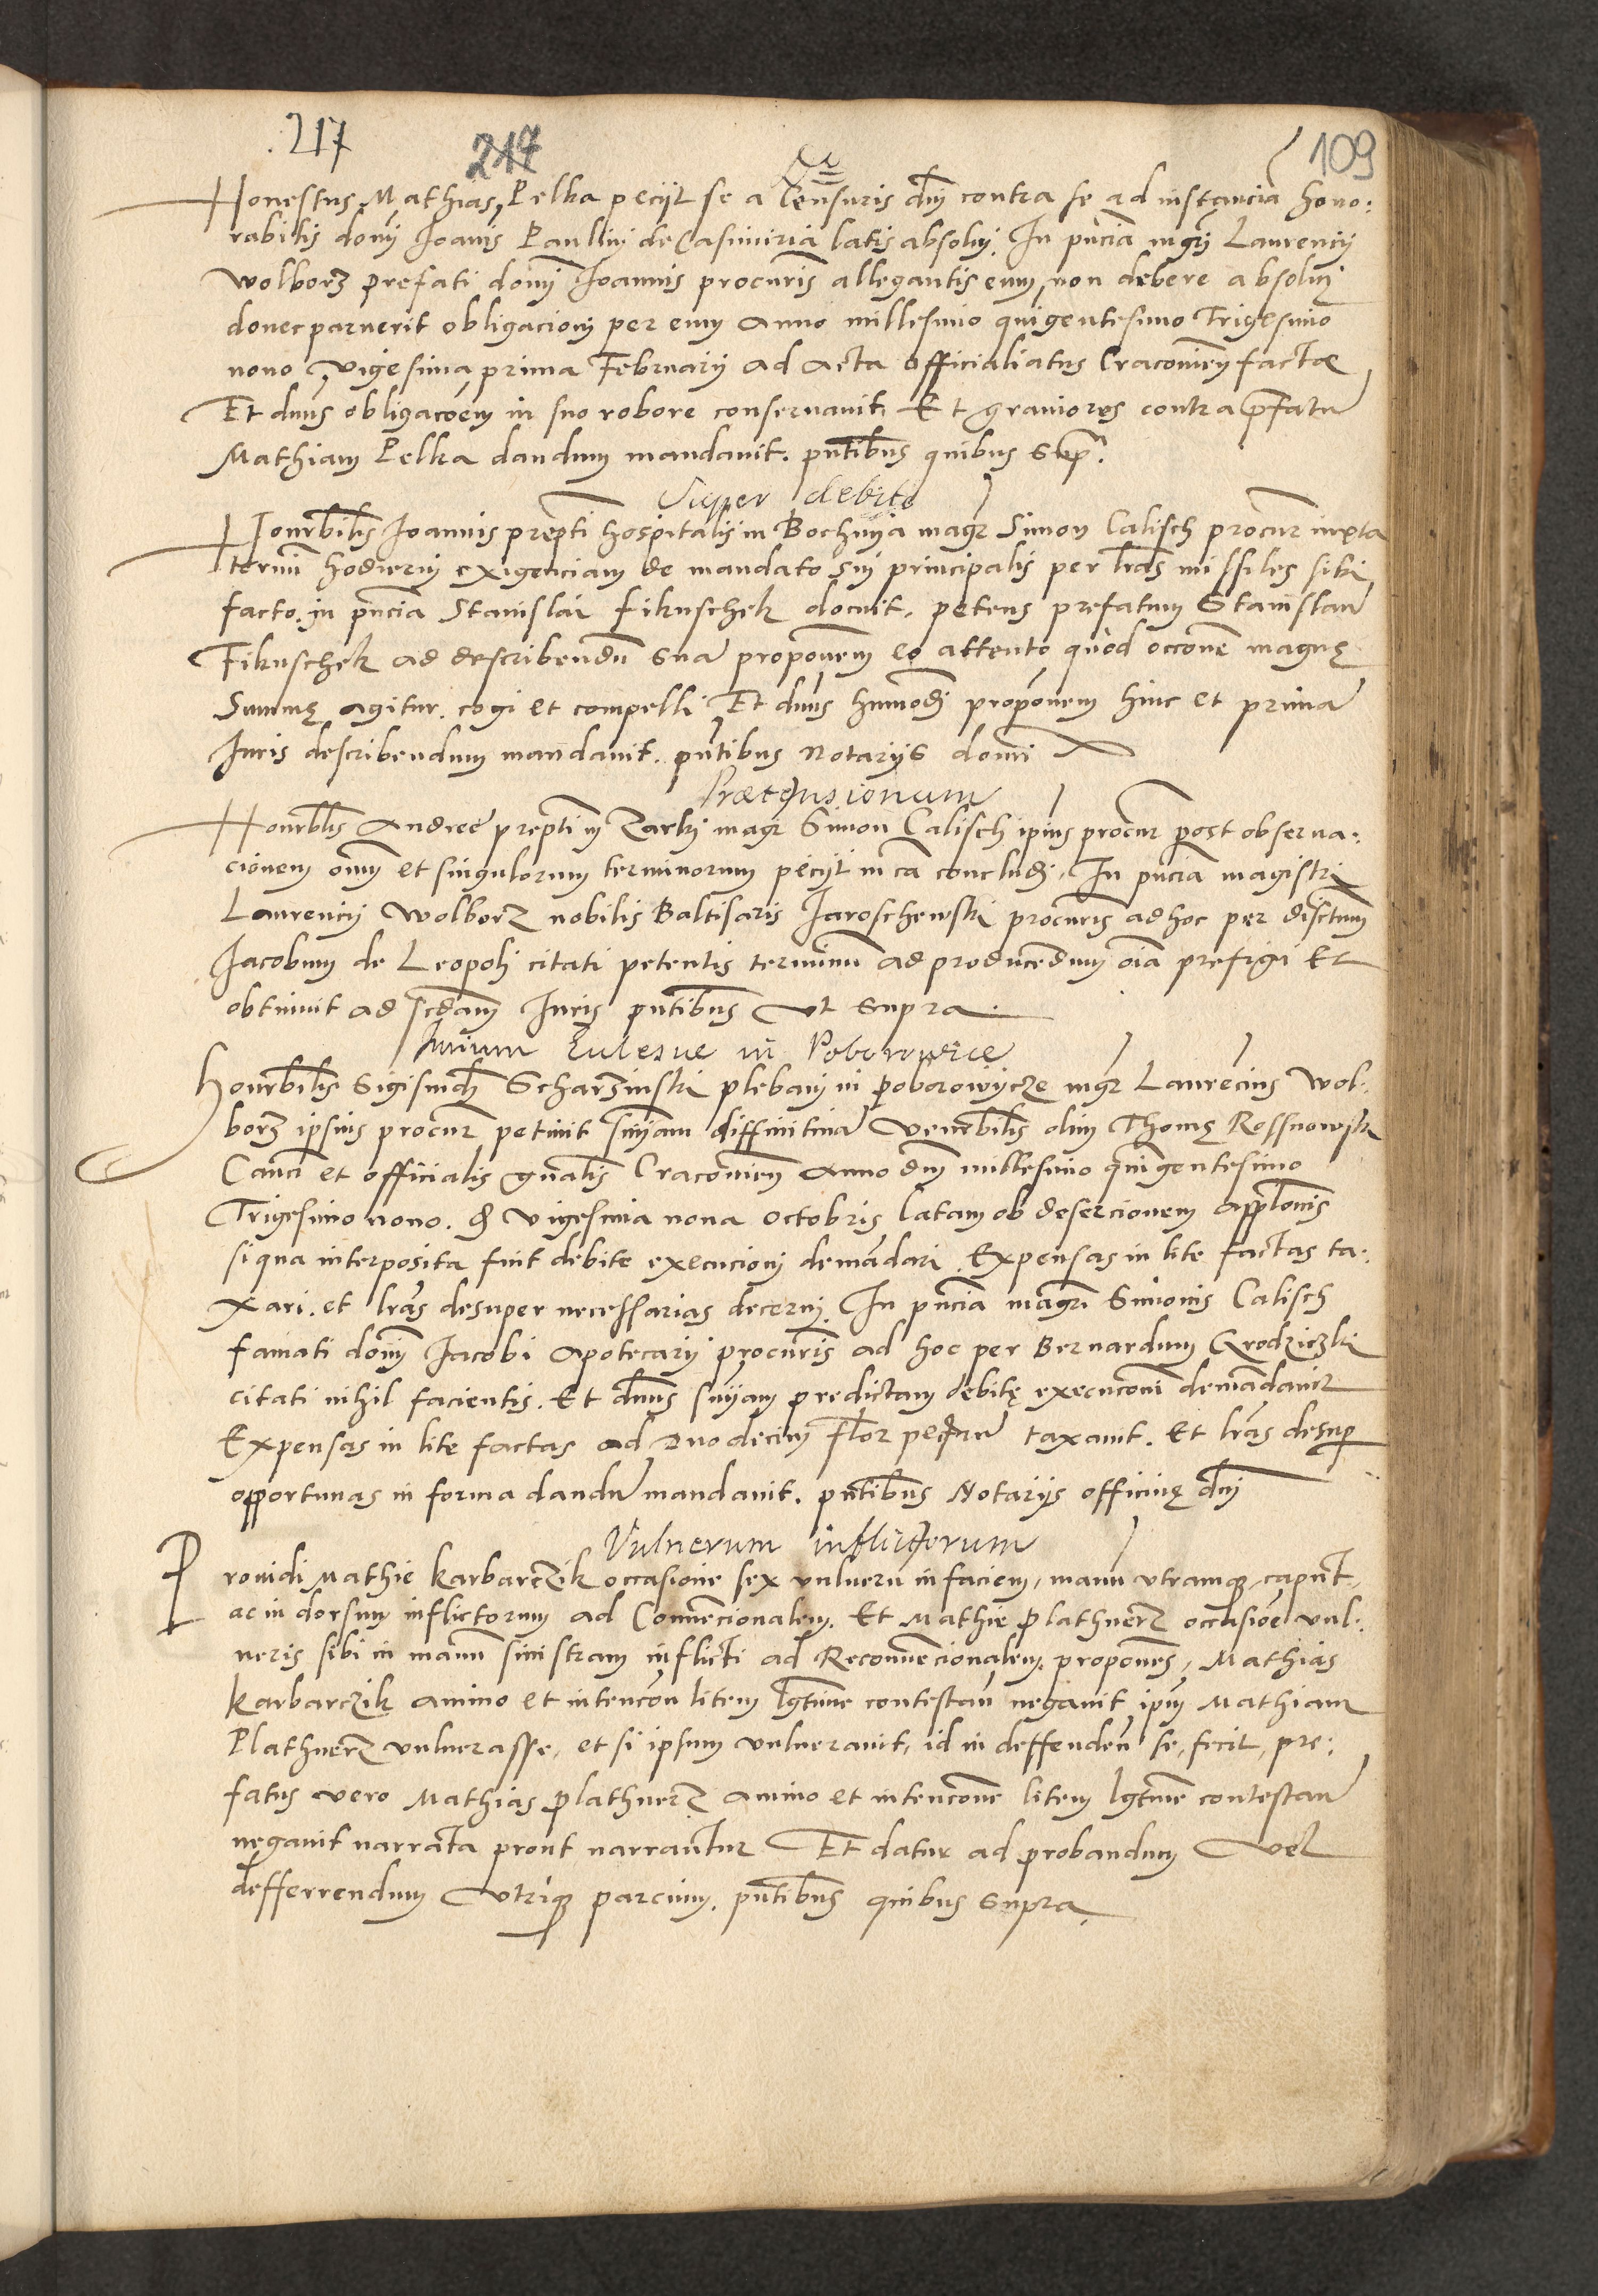 217 217 109
Honestus Mathias Pelka peciit se a Censuris dnj contra se ad instancia hono:
rabilis domj Joanis Paulinj de Casimiria latis absoluj. In pncia mgrj Laurencij
Wolborz prefati domj Joannis procuris allegantis eum non debere absoluj
donec paruerit obligacionj per eum Anno millesimo quigentesimo Trigesimo
nono vigesima prima Februarij ad acta officialiatus Cracouien facte
Et dnus obligacoem in suo robore conseruauit. Et grauiores contra prefatu
Mathiam Pelka dandum mandauit. pntibus quibus sup.
Super debito
Honrbilis Joannis prepti hospitalis in Bochnija magr Simon Calisch procur iuxta
termi hodiernj exigenciam de mandato suj principalis per lras missiles sibi
facto. in pncia Stanislai Fikuschek docuit. petens prefatum Stanislau
Fikuschek ad describendu sua proponem eo attento quod occone magnę
Summę agitur. cogi et compelli Et dnus hmmodj proponem hinc et prima
Juris describendum mandauit. pntibus Notarijs domi
Praetensionum
Honrblis Andree prepti in Zarkj magr Simon Calisch ipius procur post obserua:
cionem omm et singulorum terminorum peciit in ca concludj. In pncia magistri
Laurencij Wolborz nobilis Baltisaris Jaroschewski procuris ad hoc per disctum
Jacobum de Leopolj citati petentis terminu ad producendum oia prefigi Et
obtinuit ad scdam Juris pntibus Ut supra
in Poborowice
Honrbilis Sigismdj Scharzinski plebanj in poborowycze mgr Laurecius Wol:
borz ipsius procur petiuit snjam diffinitiua Venrbilis olim Thomę Rossnowski
Canci et officialis gnalis Cracouien Anno dnj millesimo quigentesimo
Trigesimo nono. d vigesima nona octobris latam ob desercionem applonis
siqua interposita fuit debite execucionj demandari. Expensas in lite factas ta:
xari. et lras desuper necessarias decernj. In pncia magri Simonis Calisch
famati domj Jacobi Apotecarij procuris ad hoc per Bernardum Grodziczki
citati nihil facientis. Et dnus snjam predictam debitę execuconi demandauit
Expensas in lite factas ad duodecim flor taxauit. Et lras desup
opportunas in forma dandu mandauit. pntibus Notarijs officinę dnj
Vulnerum inflictorum
Prouidi Mathie Karbarczik occasione sex vulneru in faciem, manu vtramque, caput,
ac in dorsum inflictorum ad Conuencionalem. Et Mathie Plathnerz occasioe vul:
neris sibi in manu sinistram inflicti ad Reconuencionalem. propones, Mathias
Karbarczik animo et intencon litem lgtime contestan negauit ipm Mathiam
Plathnerz vulnerasse, et si ipsum vulnerauit, id in deffenden se, fecit, pre:
fatus vero Mathias Plathnerz animo et intencone litem lgtime contestan
negauit narrata prout narrantur Et datur ad probandum Vel
defferrendum Vtrique parcium. pntibus quibus supra